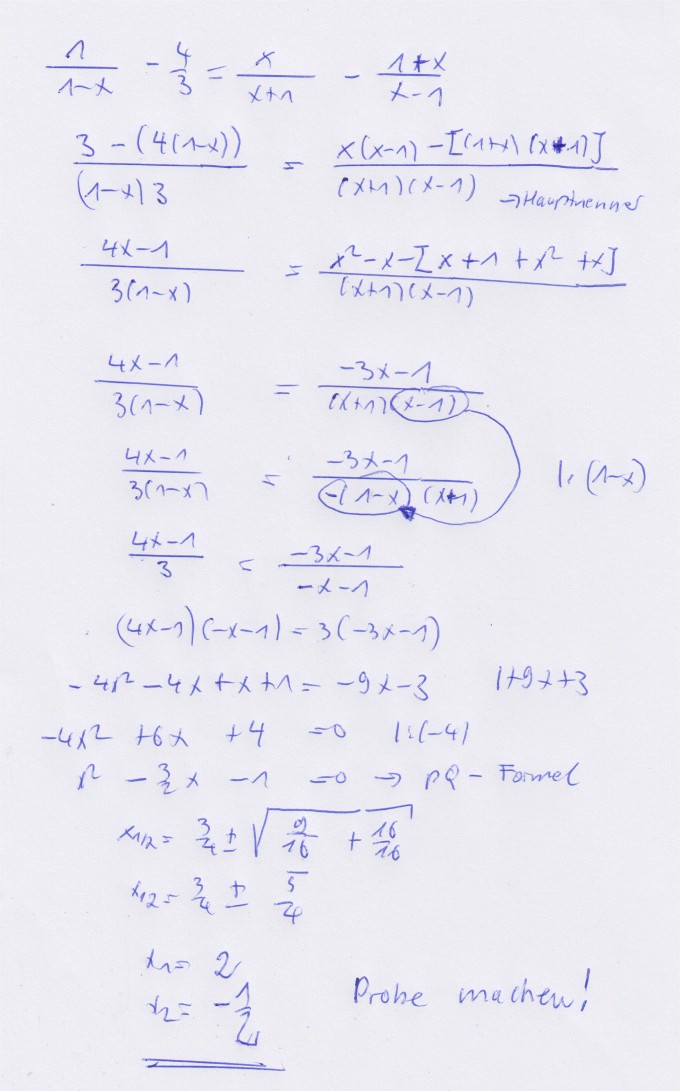 1/(1-x) - 4/3 = x/(x+1) - (1+x)/(x-1)
(3 - (4(1-x)))/((1-x)3) = (x(x-1) - [(1+x)(x+1)])/((x+1)(x-1)) → Hauptnenner
(4x-1)/(3(1-x)) = (x²-x-[x+1+x²+x])/((x+1)(x-1))
(4x-1)/(3(1-x)) = (-3x-1)/((x+1)(x-1))
(4x-1)/(3(1-x)) = (-3x-1)/(-(1-x)(x+1)) |: (1-x)
(4x-1)/3 = (-3x-1)/(-x-1)
(4x-1)(-x-1) = 3(-3x-1)
-4x² -4x+x+1 = -9x-3 |+9x+3
-4x² +6x +4 =0 |:(-4)
x² - 3/2 x -1 =0 → pQ-Formel
x1/2 = 3/4 ± √(9/16 + 16/16)
x12 = 3/4 ± 5/4
x1 = 2
x2 = -1/2 Probe machen!